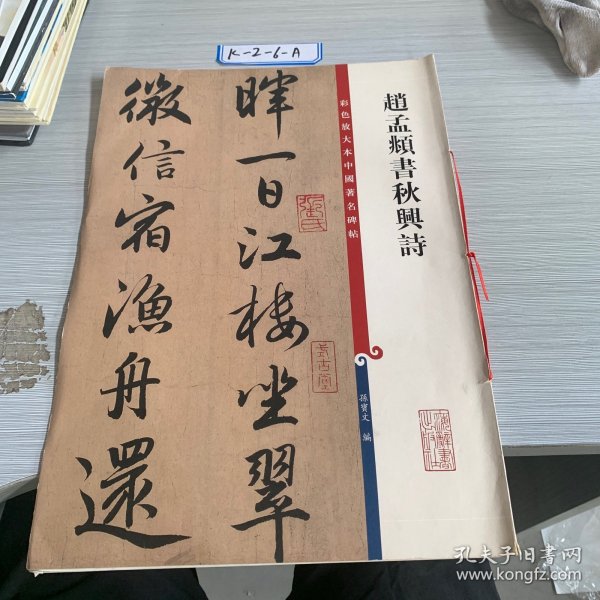 K-2-6-A
趙孟頫書秋興詩
彩色放大本中國著名碑帖
孫寶文 編
暉一日江樓坐翠
微信宿漁舟還
孔夫子旧书网
www.kongfz.com